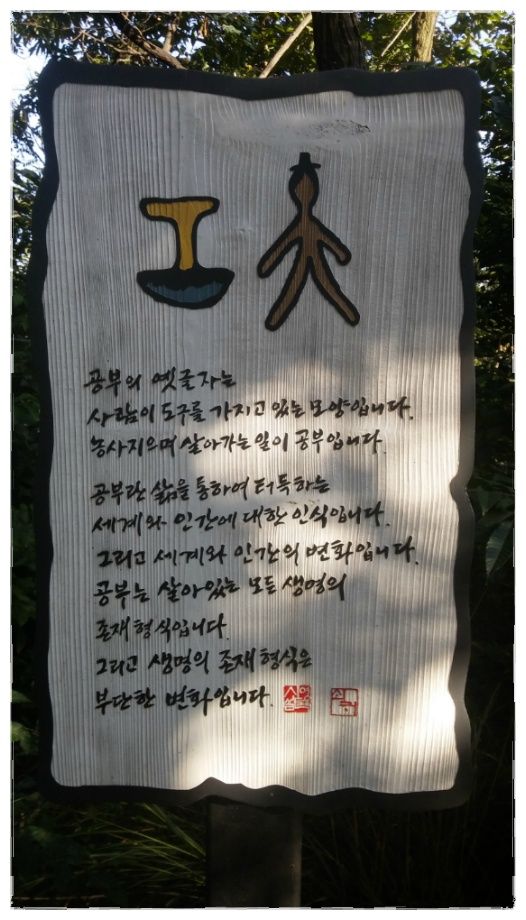 공부의 옛글자는
사람이 도구를 가지고 있는 모양입니다.
농사지으며 살아가는 일이 공부입니다.
공부란 삶을 통하여 터득하는
세계와 인간에 대한 인식입니다.
그리고 세계와 인간의 변화입니다.
공부는 살아있는 모든 생명의
존재형식입니다.
그리고 생명의 존재형식은
부단한 변화입니다.